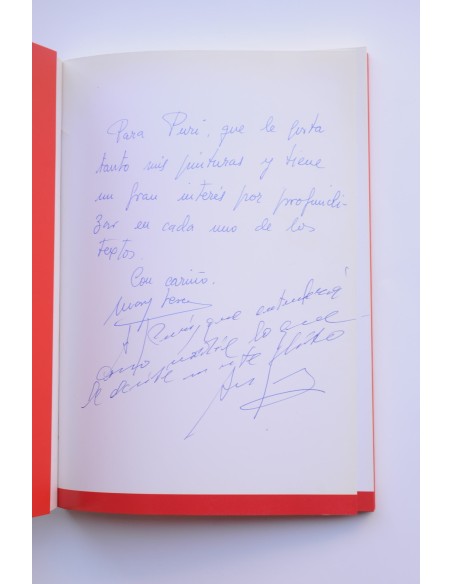 Para Puri, que le gusta
tanto mis pinturas y tiene
un gran interés por profundi-
zar en cada uno de los
textos.
Con cariño.
Mary
A Puri, que entenderá
como nadie lo que
se decide en este